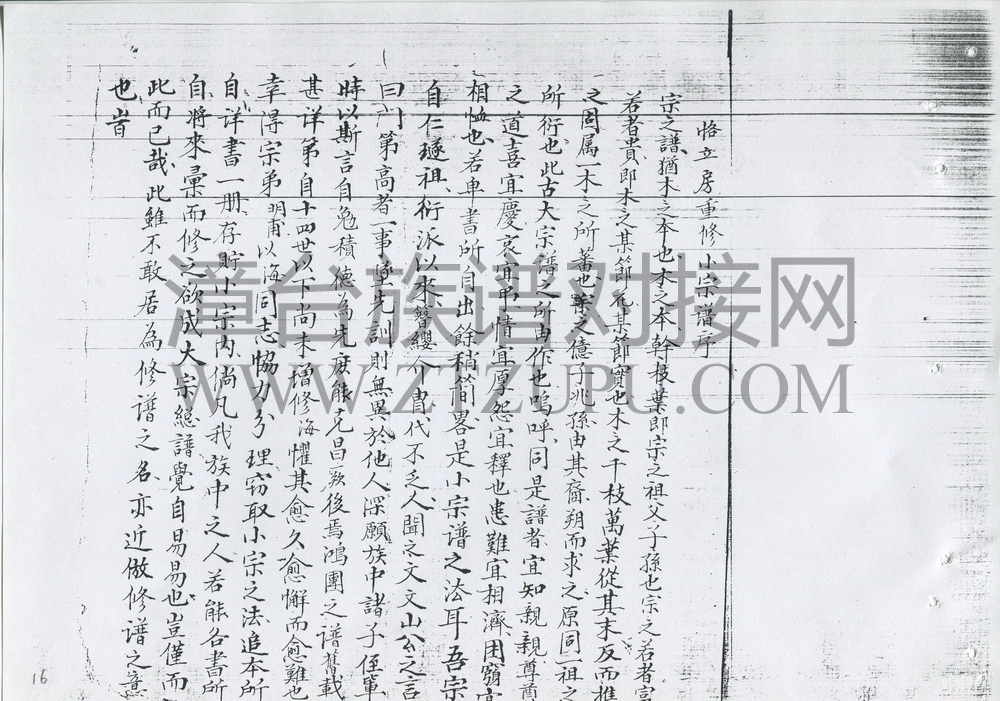 恪立房重修小宗谱序
宗之譜猶木之本也木之本幹枝葉即宗之祖父子孫也宗之若者富
若者貴即木之某節花某節實也木之千枝萬葉從其末反而推
之同属一木之所蕃也宗之億子兆孫由其裔朔而求之原同一祖之
所衍也此古大宗譜之所由作也嗚呼同是譜者宜知親親尊尊
之道喜宜慶哀宜弔情宜厚怨宜釋也患難宜相濟困窮宜
相恤也若專書所自出餘稍简畧是小宗譜之法耳吾宗
自仁璲祖衍派以來簪纓介胄代不乏人聞之文文山公之言
曰門第高者一事墜先訓則無異於他人深願族中諸子侄輩
時以斯言自勉積德為先庶能克昌厥後焉鴻團之譜舊載
甚详第自十四世以下尚未增修海懼其愈久愈懈而愈難也
幸得宗弟明甫以海同志恊力分理窃取小宗之法追本所
自详書一册存貯小宗內倘凡我族中之人若能各書所
自將來彙而修之欲成大宗總譜覺自易易也豈僅而
此而已哉此雖不敢居為修譜之名亦近倣修譜之意
也旹
漳台族谱对接网
WWW.ZTZUPU.COM
16